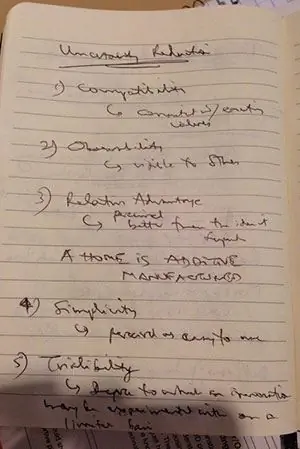 Uncertainty Reduction
1) Compatibility
↳ consistent w/ existing
values
2) Observability
↳ visible to others
3) Relative Advantage
↳ perceived
better than the idea it
A HOME IS ADDITIVE
MANUFACTURED
4) Simplicity
↳ perceived as easy to use
5) Trialibility
↳ Degree to which an innovation
may be experimented with on a
limited basis